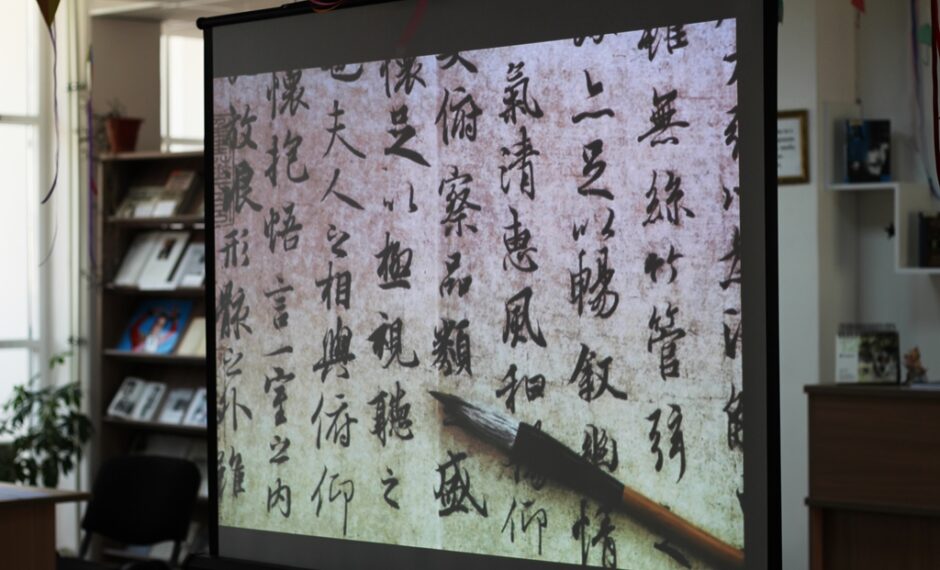 雖無絲竹管弦
亦足以暢敘幽情
氣清惠風和仰
俯察品類盛
懷足以極視聽之
夫人之相與俯仰
懷抱悟言一室之內
放浪形骸之外雖